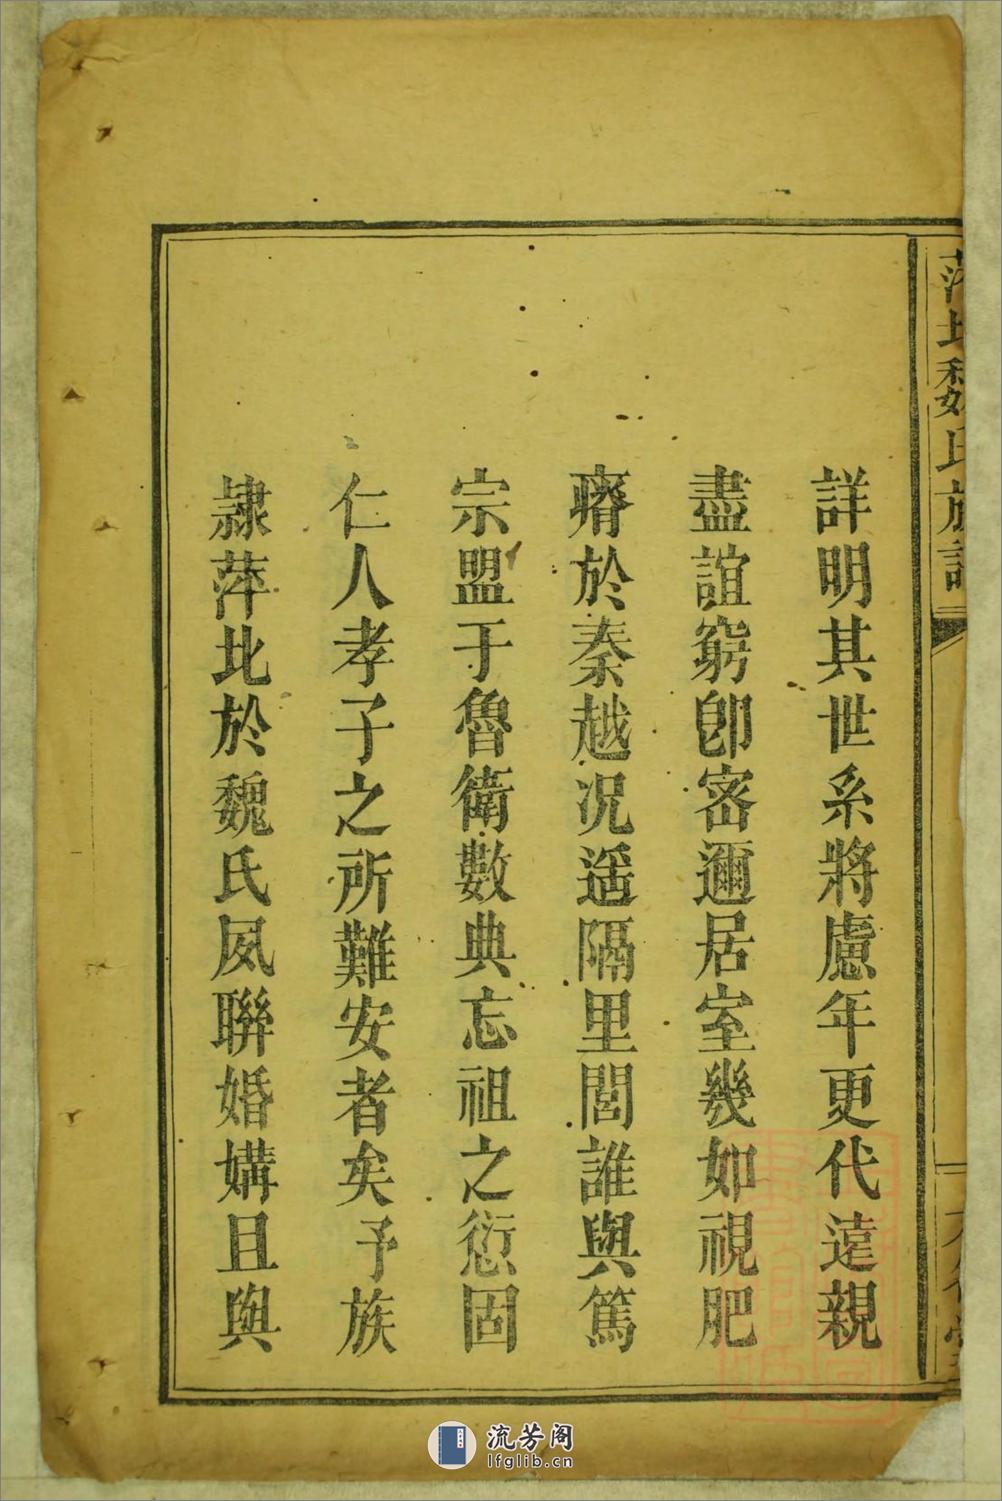 魏氏族
詳明其世系將慮年更代遠親
盡誼窮卽密邇居室幾如視肥
瘠於秦越况遥隔里閭誰與篤
宗盟于魯衛數典忘祖之愆固
仁人孝子之所難安者矣予族
隷萍北於魏氏夙聯婚媾且與
流芳阁
lfglib.cn